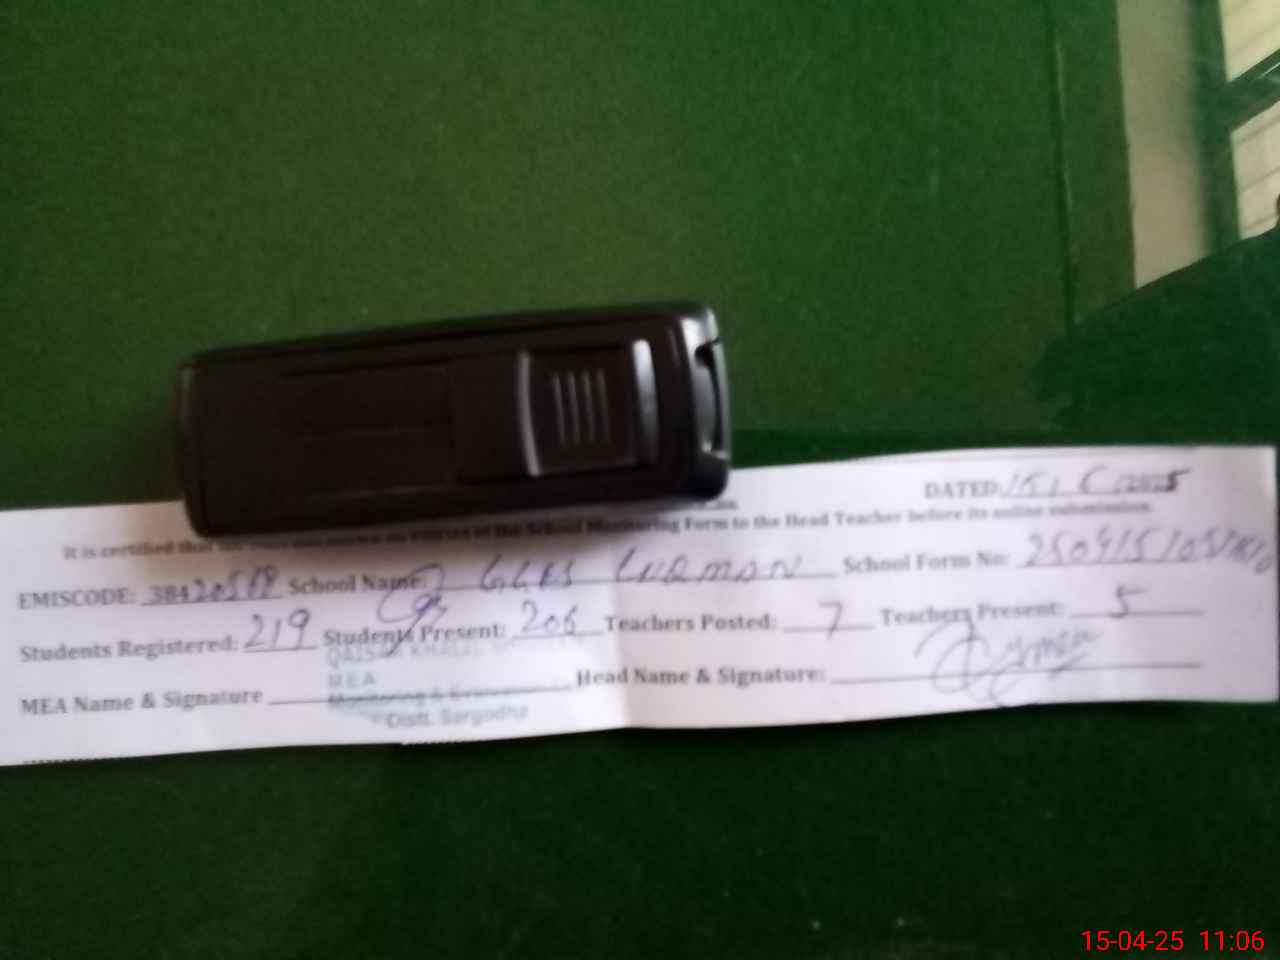 DATED: 15/4/2025
It is certified that entries of the School Monitoring Form to the Head Teacher before its online submission.
EMISCODE: 38420568 School Name: GGES LURMAN School Form No:
Students Registered: 219 Students Present: 206 Teachers Posted: 7 Teachers Present: 5
QAISAR KHALIL
MEA
MEA Name & Signature Head Name & Signature:
Monitoring &
Distt. Sargodha
15-04-25 11:06